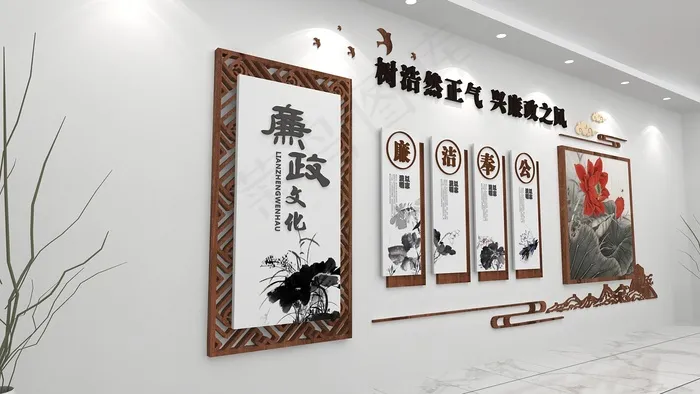 树浩然正气 兴廉政之风
廉政文化
LIANZHENGWENHAU
廉
洁
奉
公